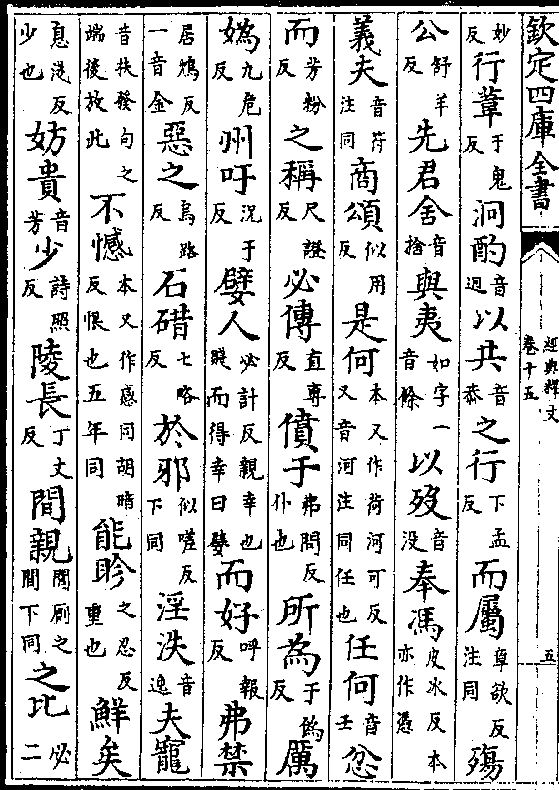 欽定四庫全書
經典釋文
卷十五
五
妙反行葦于鬼反泂酌音迥以共音恭之行下孟反而屬章欲反注同殤
公舒羊反先君舍音捨與夷如字一音餘以歿音没奉馮皮冰反本亦作憑
義夫音符注同商頌似用反是何本又作荷河可反又音河注同任也任何音壬忿
而芳粉反之稱尺證反必傳直專反僨于弗問反仆也所為于僞反厲
嬀九危反州吁況于反嬖人必計反親幸也賤而得幸曰嬖而好呼報反弗禁
居鴆反一音金惡之烏路反石碏七略反於邪似嗟反下同淫泆音逸夫寵
音扶發句之端後放此不憾本又作感同胡暗反恨也五年同能眕之忍反重也鮮矣
息淺反少也妨貴音芳少詩照反陵長丁丈反間親間廁之間下同之比必二